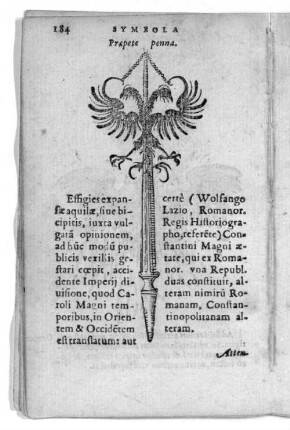 184 SYMBOLA
Præpete penna.
Effigies expan-
sæ aquilæ, siue bi-
cipitis, iuxta vul-
garã opinionem,
ad hũc modũ pu-
blicis vexillis ge-
stari cœpit, acci-
dente Imperij di-
uisione, quod Ca-
roli Magni tem-
poribus, in Orien-
tem & Occidẽtem
est translatum: aut
certè (Wolfango
Lazio, Romanor.
Regis Historiogra-
pho, referẽte) Con-
stantini Magni æ-
tate, qui ex Roma-
nor. vna Republ.
duas constituit, al-
teram nimirũ Ro-
manam, Constan-
tinopolitanam al-
teram.
Atten